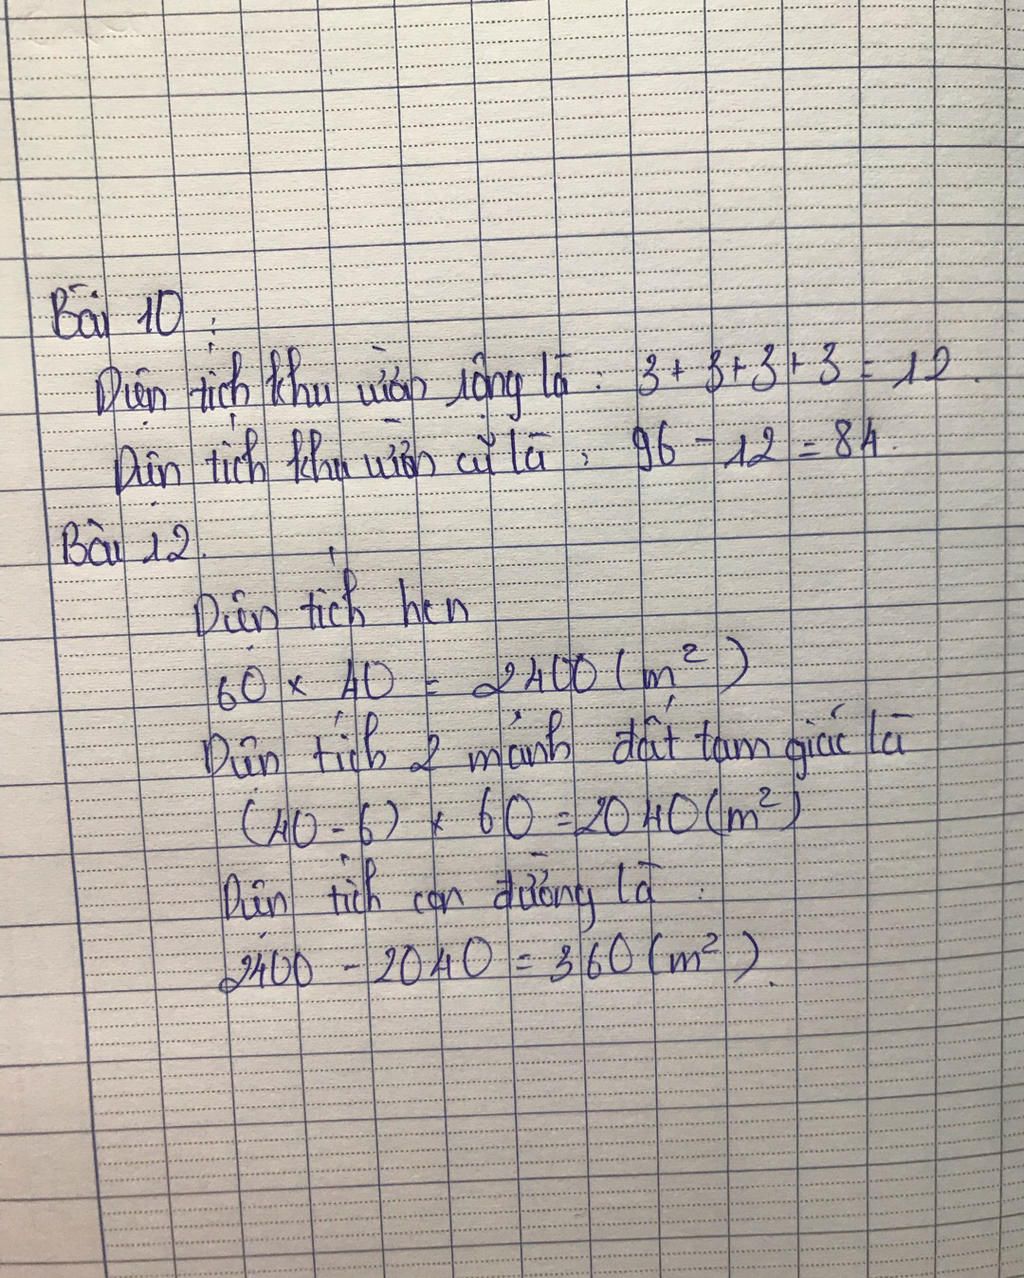 Bài 10 :
Diện tích khu vườn rộng là : 3 + 3 + 3 + 3 = 12.
Diện tích khu vườn cũ là : 96 - 12 = 84.
Bài 12.
Diện tích hcn
60 × 40 = 2400 (m²)
Diện tích 2 mảnh đất tam giác là
(40 - 6) × 60 = 2040 (m²)
Diện tích con đường là :
2400 - 2040 = 360 (m²).